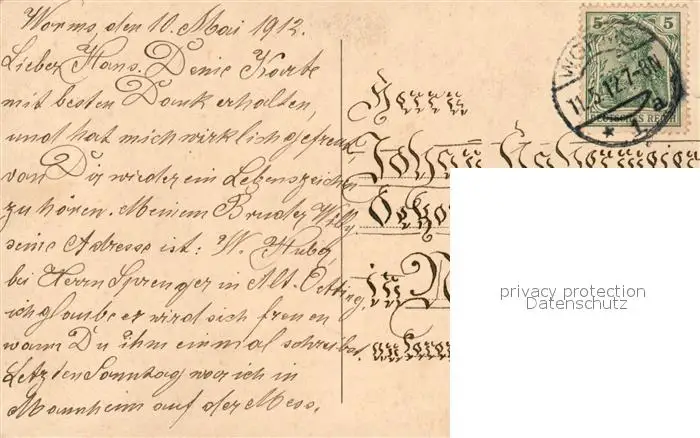 Worms, den 10. Mai 1912.
Lieber Hans. Deine Karte
mit besten Dank erhalten,
und hat mich wirklich gefreut
von Dir wieder ein Lebenszeichen
zu hören. Meinem Bruder Willy
seine Adresse ist: W. Huber,
bei Herrn Sprenger in Alt-Oetting,
ich glaube er wird sich freuen
wann Du ihm einmal schreibst.
Letzten Sonntag war ich in
Mannheim auf der Mess.
5 5
DEUTSCHES REICH
WORMS
11.5.12.7-8N
* 1a
Herrn
Johan
in
privacy protection
Datenschutz